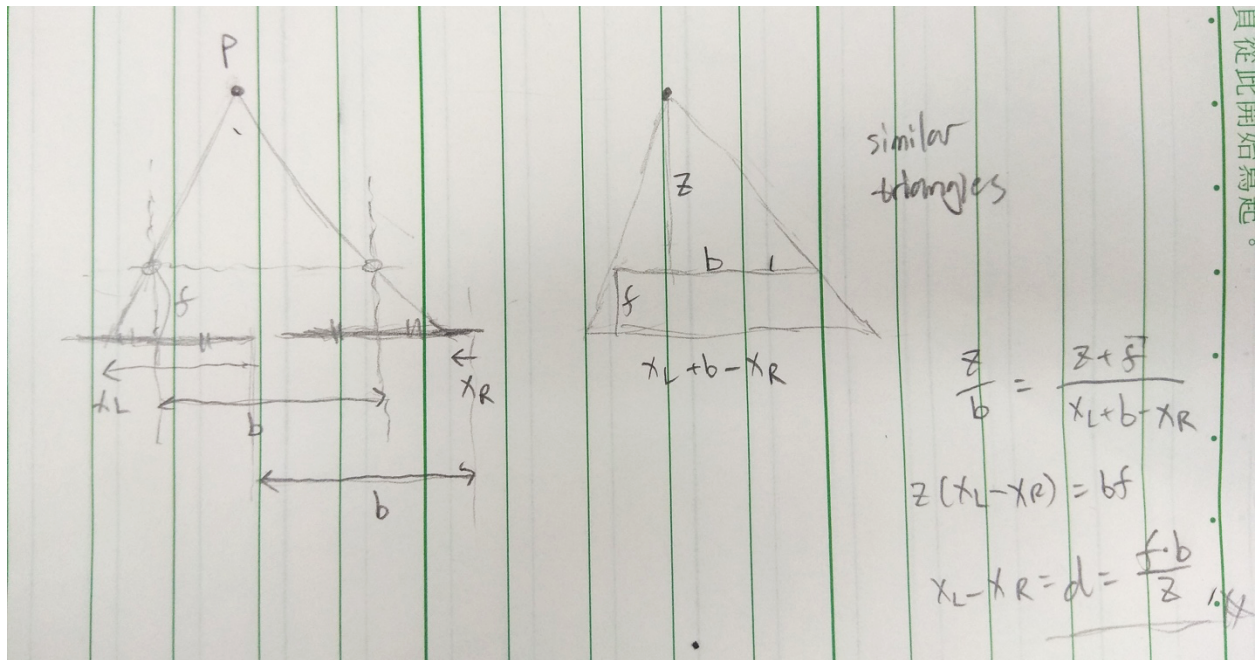 P
f
x_L
b
x_R
b
z
b
f
x_L + b - x_R
similar
triangles
z/b = (z + f)/(x_L + b - x_R)
z(x_L - x_R) = bf
x_L - x_R = d = f·b/z
頁從此開始寫起。